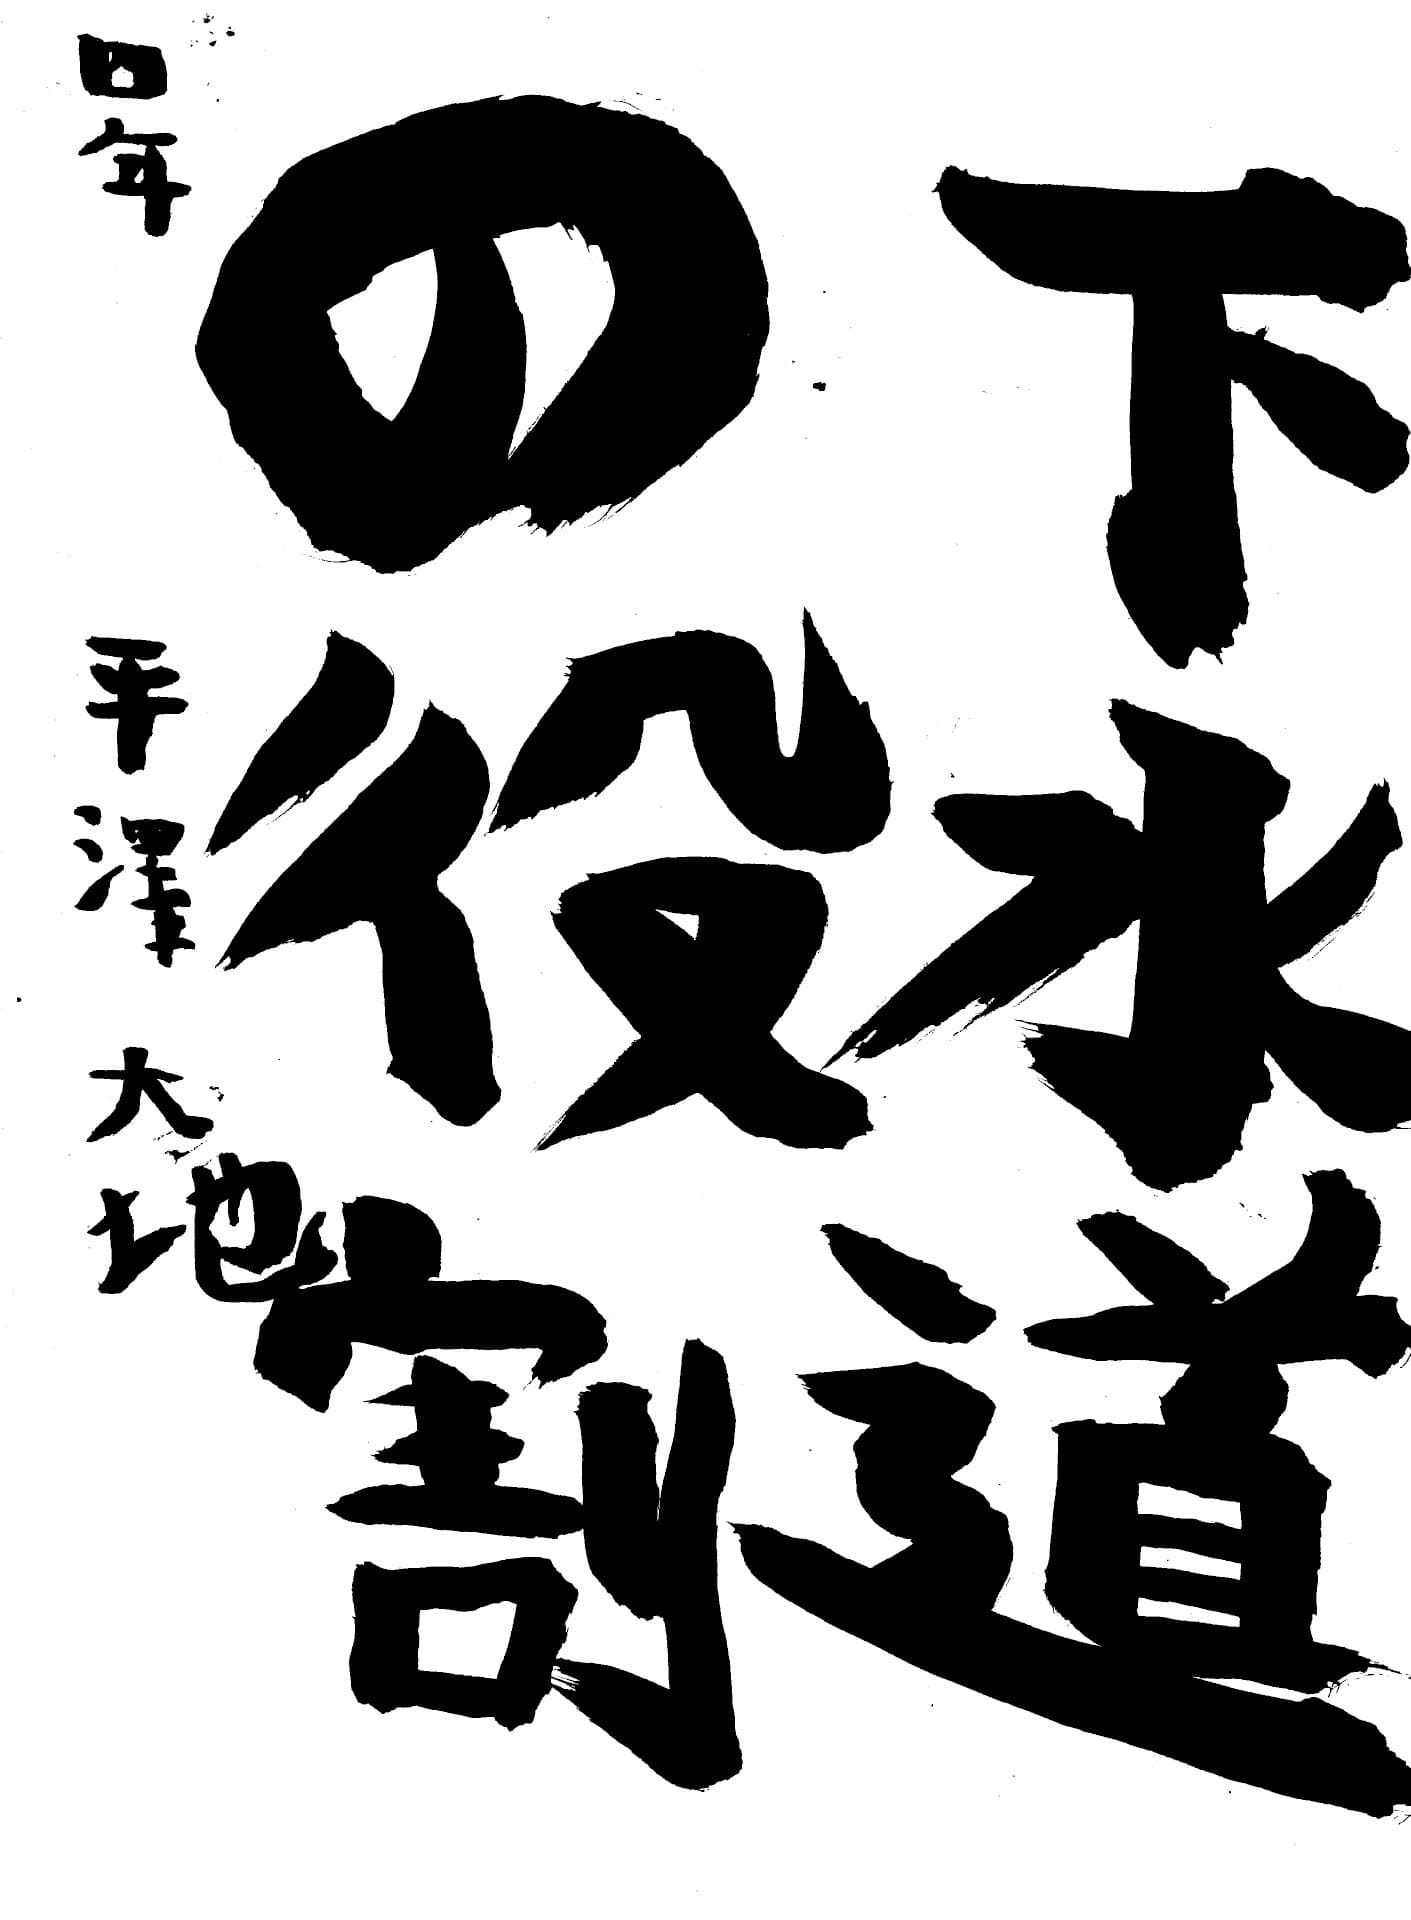 下水道
の役割
四年 平澤大地